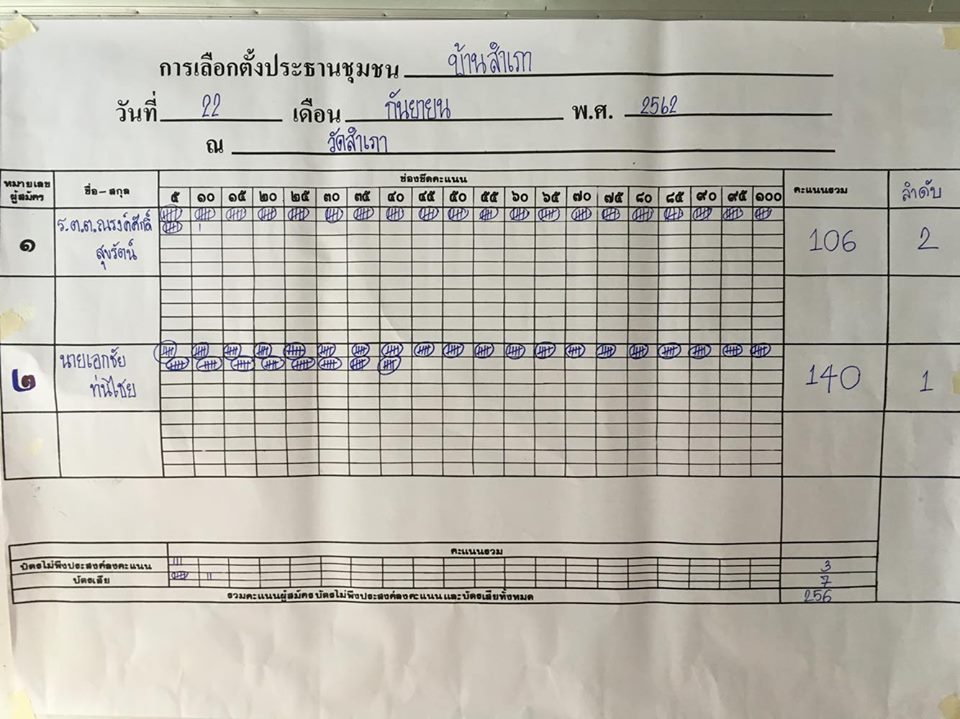 การเลือกตั้งประธานชุมชน บ้านสำเภา
วันที่ 22 เดือน กันยายน พ.ศ. 2562
ณ วัดสำเภา
หมายเลขผู้สมัคร ชื่อ-สกุล ช่องขีดคะแนน คะแนนรวม ลำดับ
๕ ๑๐ ๑๕ ๒๐ ๒๕ ๓๐ ๓๕ ๔๐ ๔๕ ๕๐ ๕๕ ๖๐ ๖๕ ๗๐ ๗๕ ๘๐ ๘๕ ๙๐ ๙๕ ๑๐๐
๑ ร.ต.ต.ณรงค์ศักดิ์ 106 2
สุขรัตน์
๒ นายเอกชัย 140 1
คะแนนรวม
บัตรไม่พึงประสงค์ลงคะแนน 3
บัตรเสีย 7
รวมคะแนนผู้สมัคร บัตรไม่พึงประสงค์ลงคะแนน และบัตรเสียทั้งหมด 256